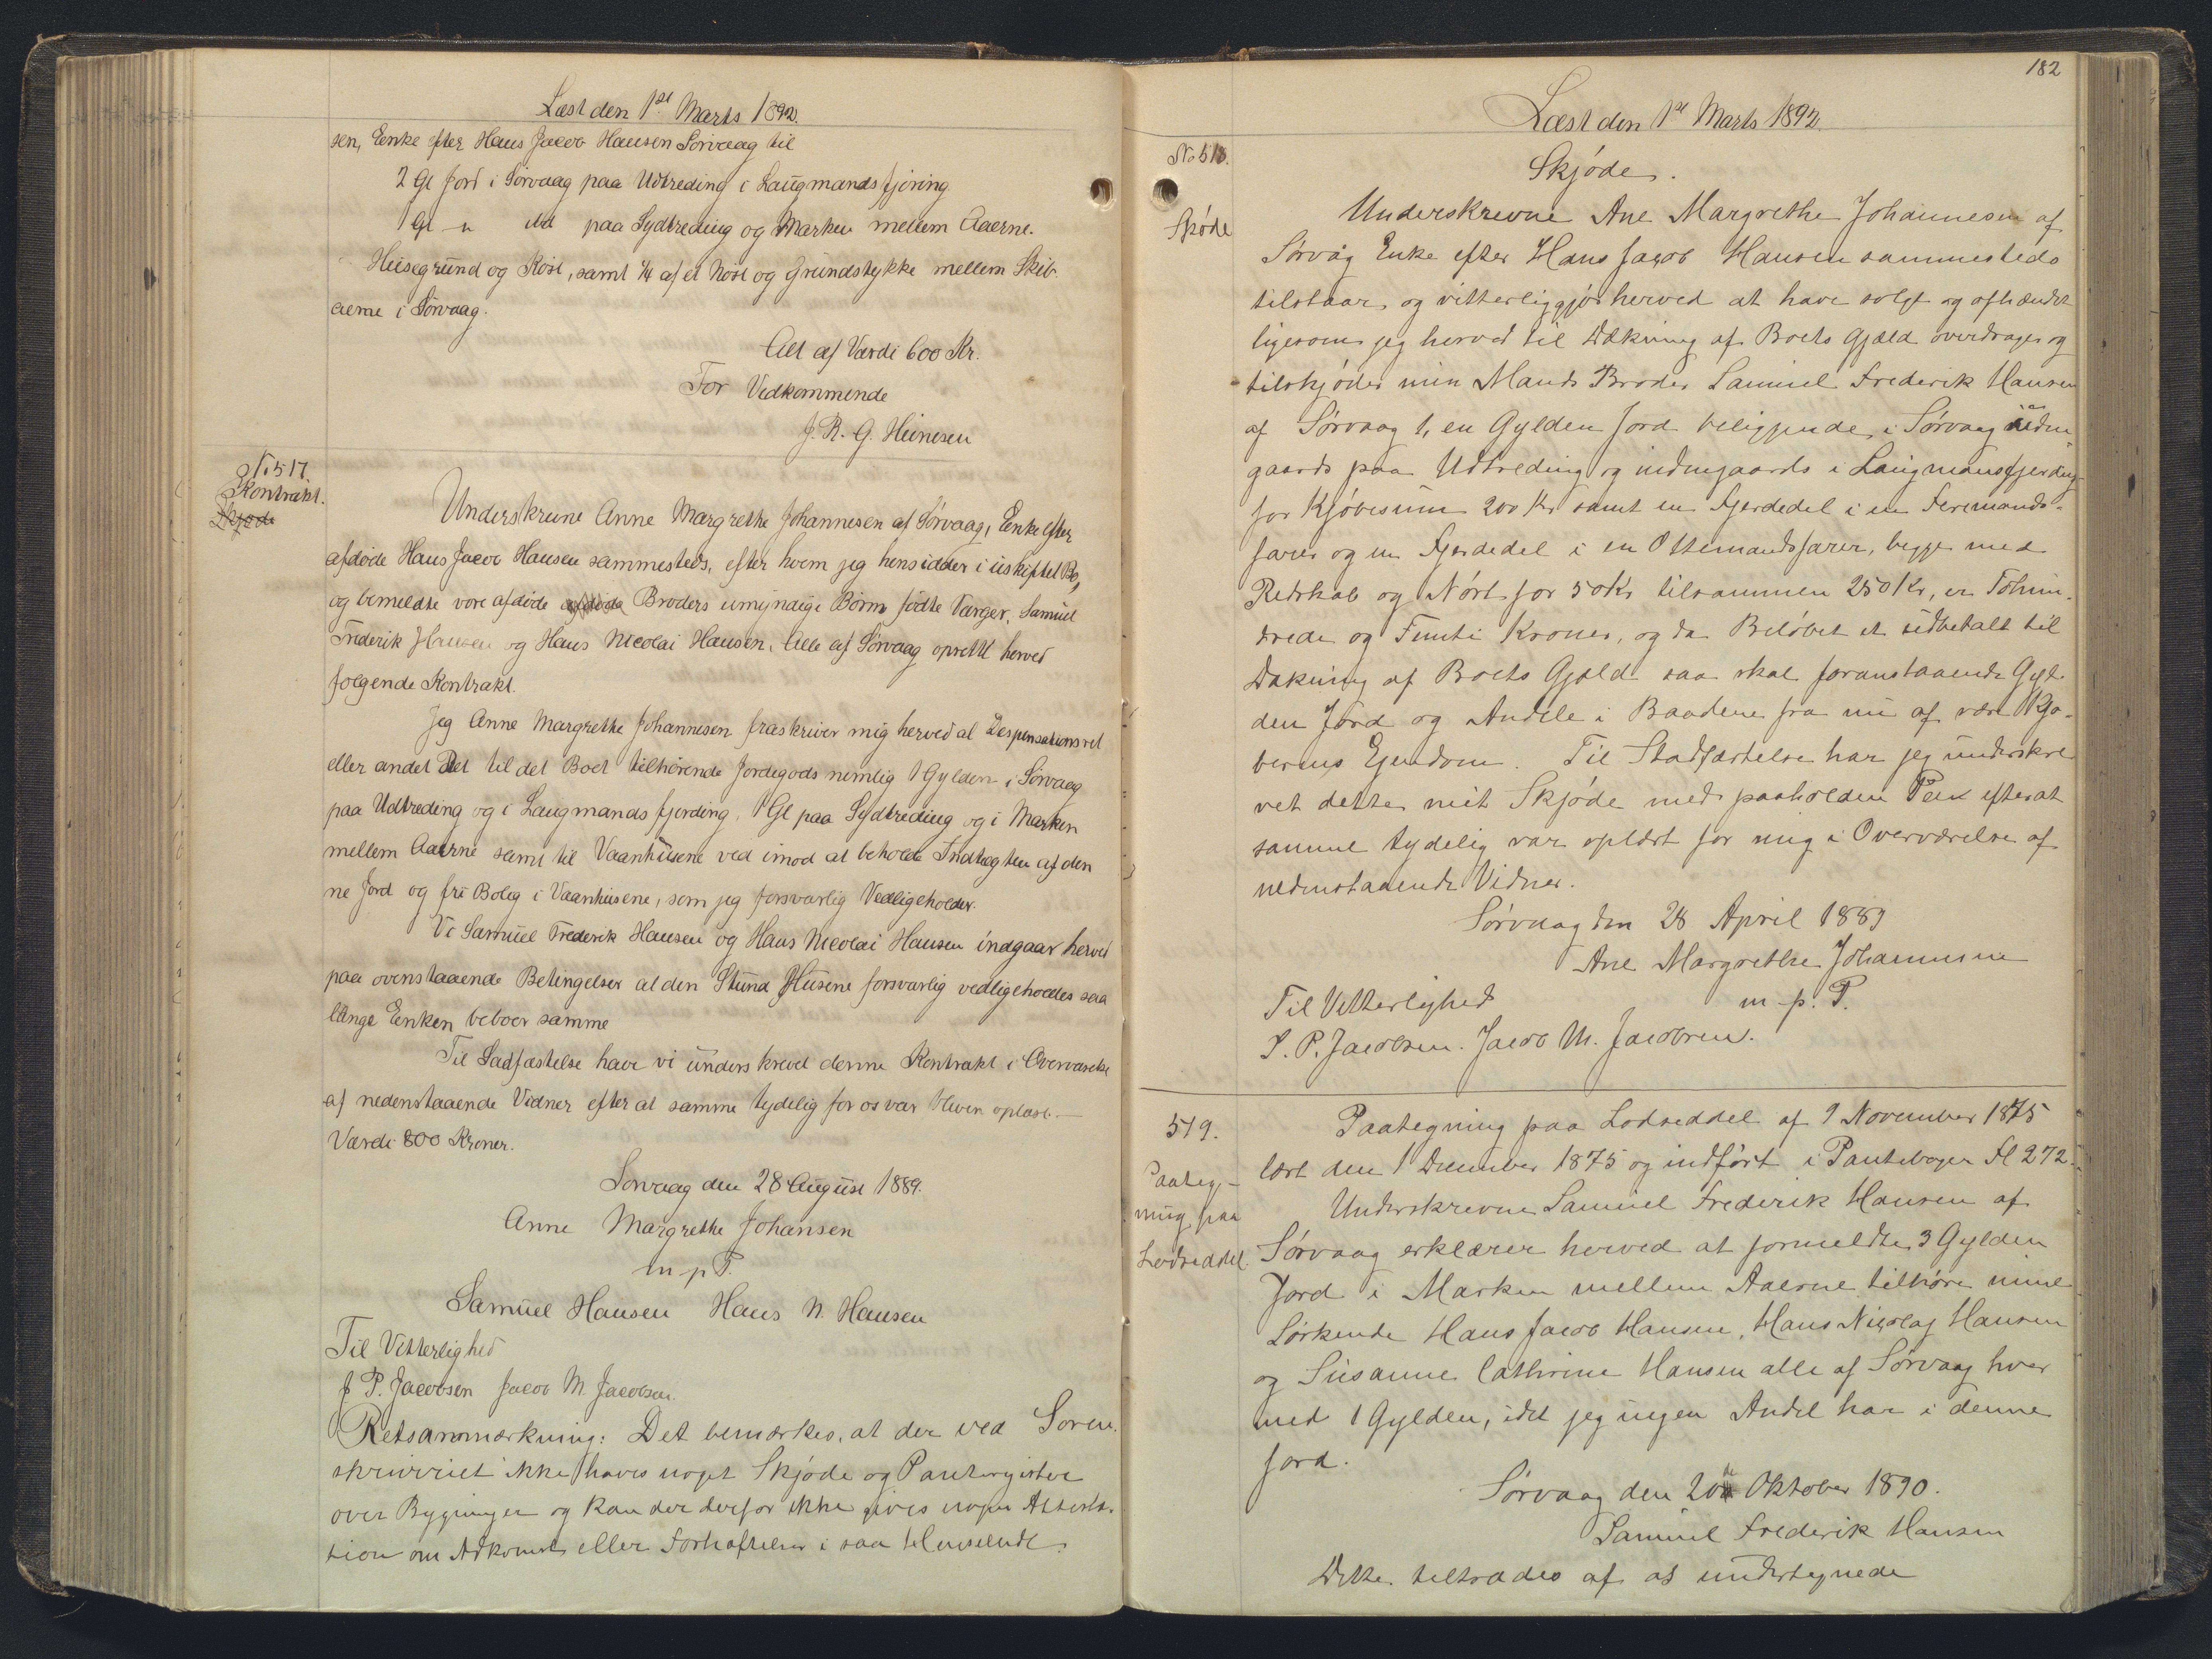 Læst den 1ste Marts 1892.
sen, Enke efter Hans Jacob Hansen Sörvaag til
2 Gl Jord i Sörvaag paa Udtreding i Laugmandsfjering
1 Gl - " dd paa Sydtreding og Marken mellem Aaerne.
Huusegrund og Röst, samt 1/4 af et Nöst og Grundstykke mellem Skib
aerne i Sörvaag.
Alt af Værdi 600 Kr.
For Vedkommende
J. R. G. Heinesen
No 517.
Kontrakt.
Skjøde
Underskrevne Anne Margrethe Johannesen af Sörvaag, Enke efter
afdöde Hans Jacob Hansen sammesteds, efter hvem jeg hensidder i uskiftet Bo,
og bemeldte vore afdöde afdöde Broders umyndige Börns födte Værger, Samuel
Frederik Hansen og Hans Nicolai Hansen, Alle af Sörvaag oprettet herved
folgende Kontrakt.
Jeg Anne Margrethe Johannesen fraskriver mig herved al Despensationsret
eller andet Ret til det Boet tilhörende Jordegods nemlig 1 Gylden i Sörvaag
paa Udtreding og i Laugmandsfjerding, 1 Gl paa Sydtreding og i Marken
mellem Aaerne samt til Vaanhusene ved imod at beholde Indtægten af den
ne Jord og fri Bolig i Vaanhusene, som jeg forsvarlig Vedligeholder.
Vi Samuel Frederik Hansen og Hans Nicolai Hansen indgaar herved
paa ovenstaaende Betingelser al den Stund Husene forsvarlig vedligeholdes saa
længe Enken beboer samme
Til Sadfæstelse have vi underskrevet denne Kontrakt i Overværelse
af nedenstaaende Vidner efter at samme tydelig for os var bleven oplæst.—
Værdi 800 Kroner.
Sörvaag den 28 August 1889.
Anne Margrethe Johansen
m p P.
Samuel Hansen Hans N. Hansen
Til Vitterlighed
J P. Jacobsen Jacob M. Jacobsen.
Retsanmærkning: Det bemærkes, at der ved Soren-
skriveriet ikke haves noget Skjøde og Panteregister
over Bygninger og kan der derfor ikke gives nogen Attesta-
tion om Adkomst eller Forhæftelser i saa Henseende.
182
Læst den 1ste Marts 1892.
No 518.
Skjøde
Skjøde.
Underskrevne Ane Margrethe Johannesen af
Sörvåg Enke efter Hans Jacob Hansen sammesteds
tilstaar og vitterliggjør herved at have solgt og afhændet
ligesom jeg herved til Dækning af Boets Gjæld overdrager og
tilskjøder min Mands Broder Samuel Frederik Hansen
af Sörvaag 1, en Gylden Jord beliggende i Sörvaag uden
gaards paa Udtreding og indengaards i Laugmansfjerding
for Kjøbesum 200 Kr samt en Fjerdedel i en Firemands-
farer og en Fjerdedel i en Ottemandsfarer, begge med
Redskab og Nöst for 50 Kr tilsammen 250 Kr, er Tohun-
drede og Femti Kroner, og da Beløbet er udbetalt til
Dækning af Boets Gjæld saa skal foranstaaende Gyl-
den Jord og Andele i Baadene fra nu af være Kjø-
berens Ejendom. Til Stadfæstelse har jeg underskre
vet dette mit Skjøde med paaholden Pen efter at
samme tydelig var oplæst for mig i Overværelse af
nedenstaaende Vidner.
Sörvaag den 28 April 1889
Ane Margrethe Johannesen
m. p. P.
Til Vitterlighed
J. P. Jacobsen. Jacob M. Jacobsen.
519.
Paateg-
ning paa
Lodseddel.
Paategning paa Lodseddel af 9 November 1875
læst den 1 December 1875 og indført i Pantebogen Fl 272.
Underskrevne Samuel Frederik Hansen af
Sörvaag erklærer herved at formeldte 3 Gylden
Jord i Marken mellem Aaerne tilhøre mine
Sörkende Hans Jacob Hansen, Hans Nicolaj Hansen
og Susanne Cathrine Hansen alle af Sörvaag hver
med 1 Gylden, idet jeg ingen Andel har i denne
Jord.
Sörvaag den 20de Oktober 1890.
Samuel Frederik Hansen
Dette tiltrædes af os undertegnede